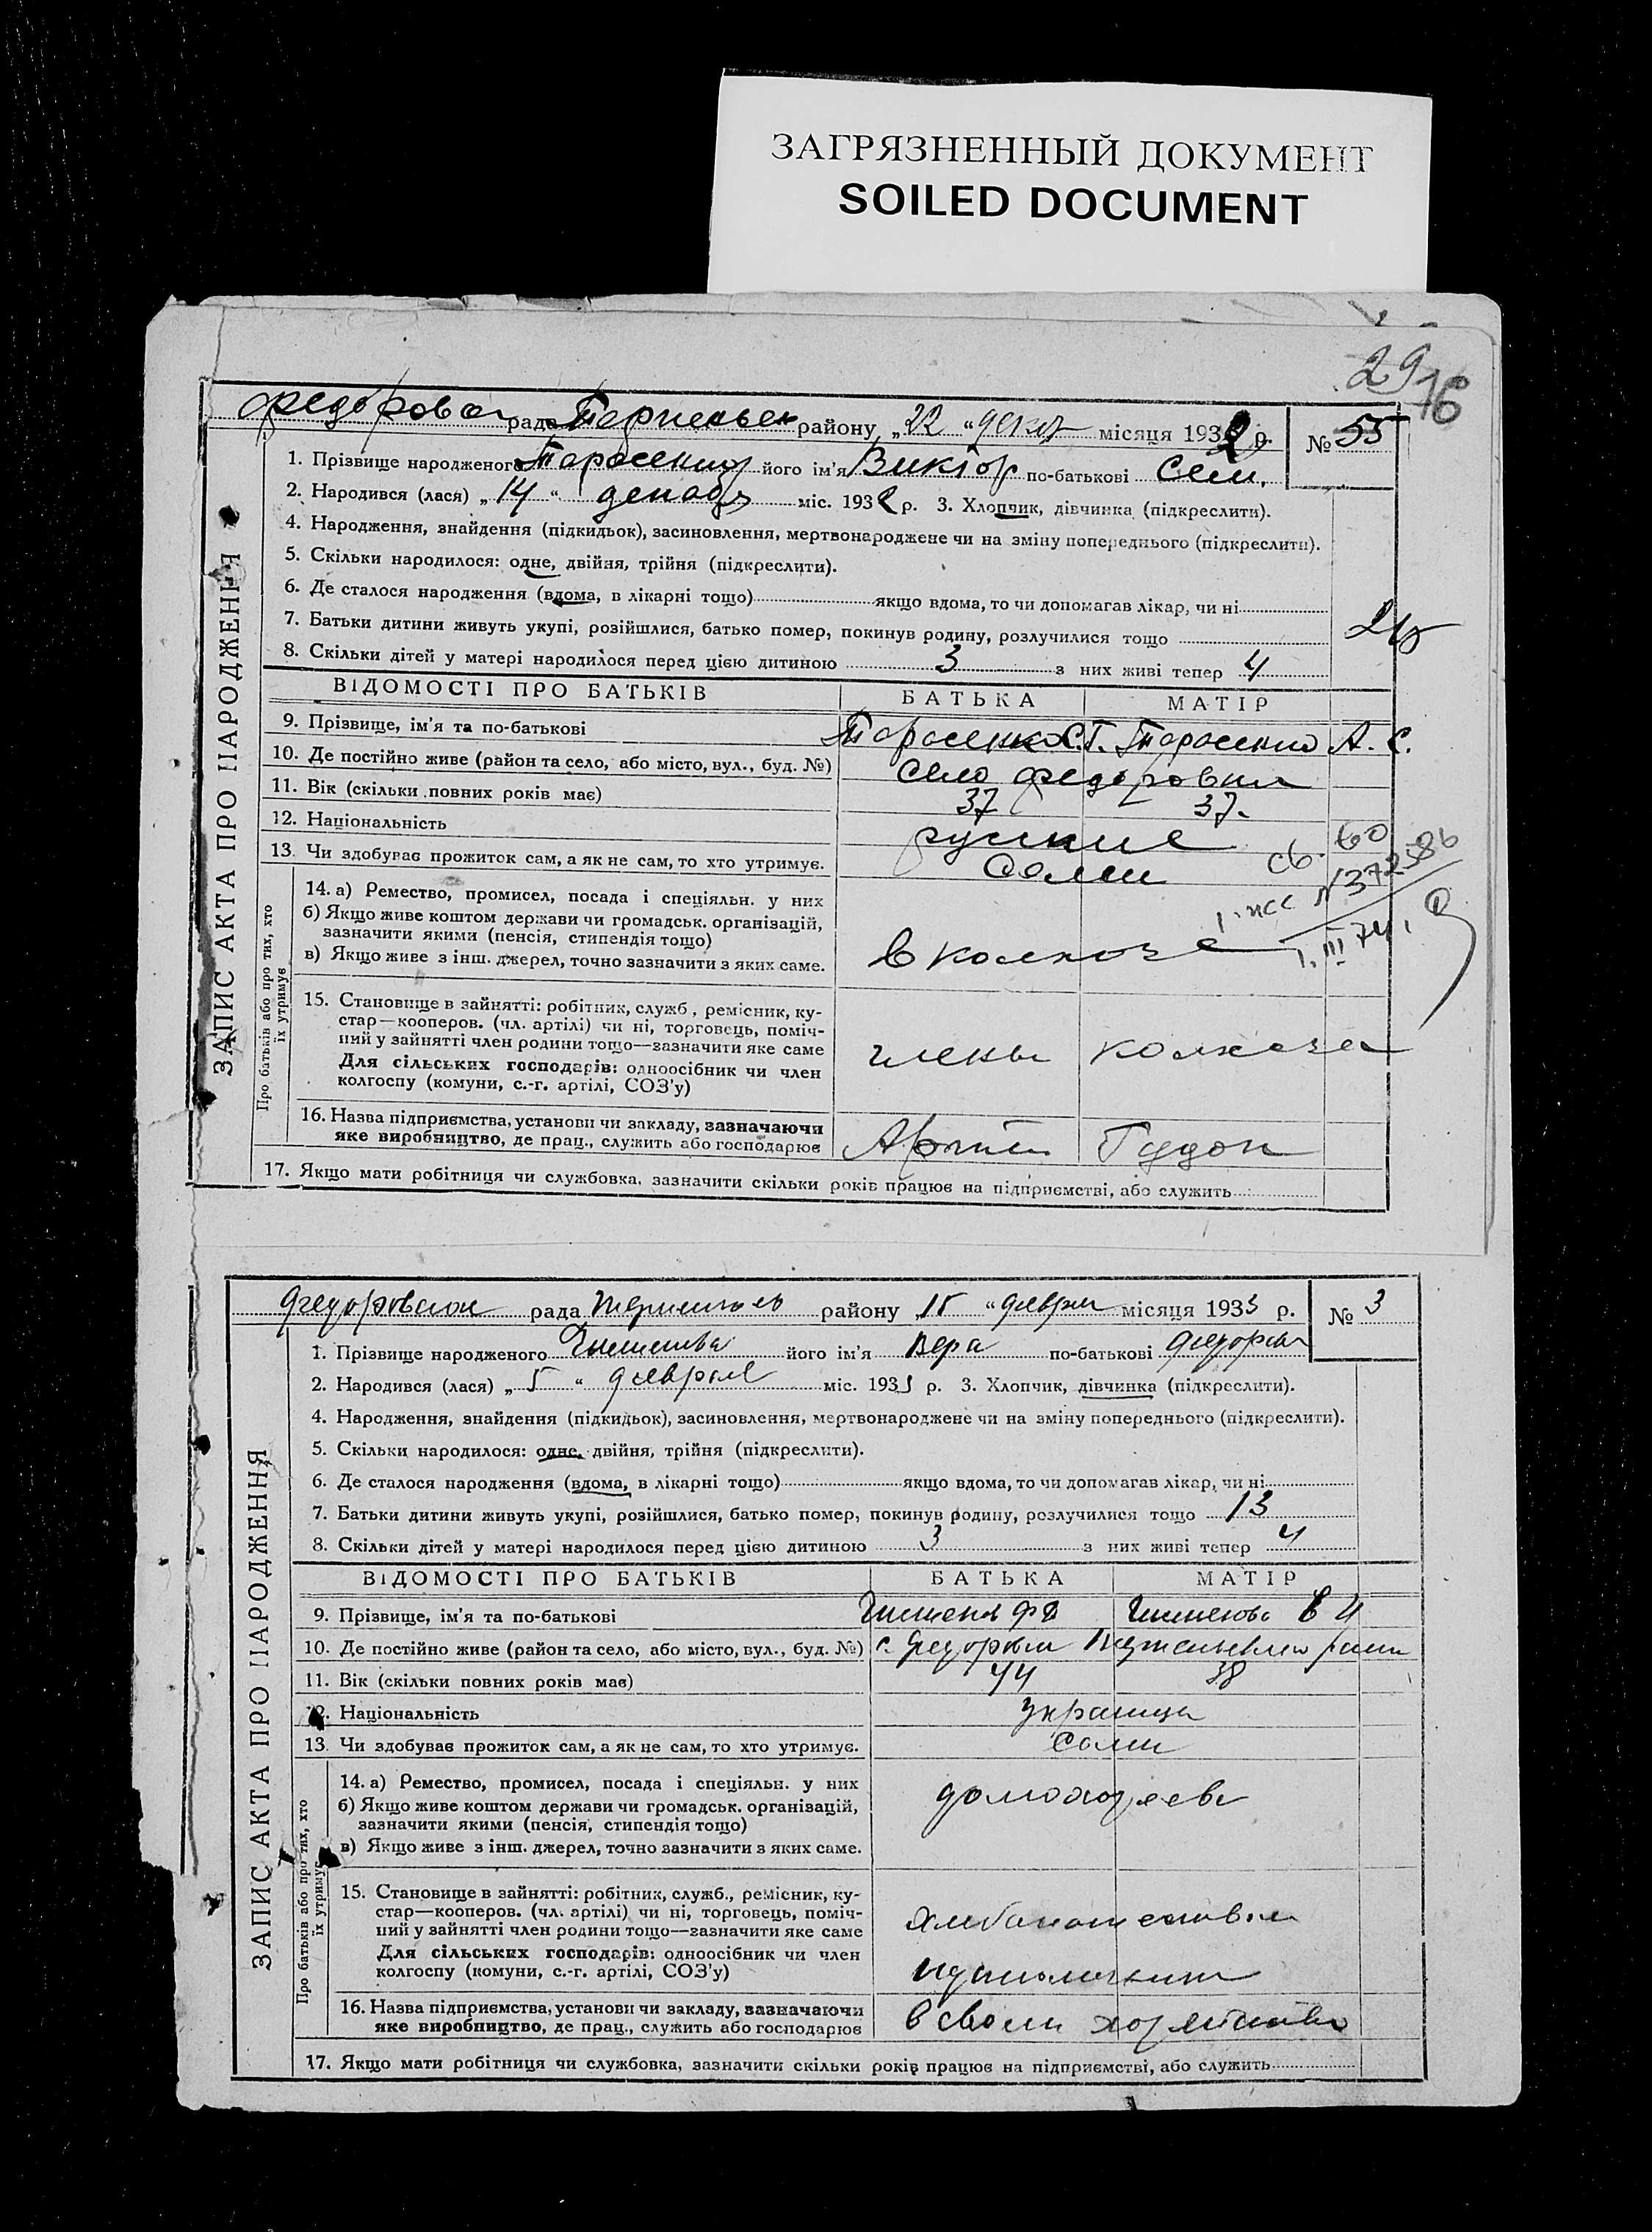 ЗАГРЯЗНЕННЫЙ ДОКУМЕНТ
SOILED DOCUMENT
29 16
рада району „22“ декаб місяця 1932 р. № 55
ЗАПИС АКТА ПРО НАРОДЖЕННЯ
1. Прізвище народженого Тарасенко його ім'я Виктор по-батькові Сем.
2. Народився (лася) „14“ декабр міс. 1932 р. 3. Хлопчик, дівчинка (підкреслити).
4. Народження, знайдення (підкидьок), засиновлення, мертвонароджене чи на зміну попереднього (підкреслити).
5. Скільки народилося: одне, двійня, трійня (підкреслити).
6. Де сталося народження (вдома, в лікарні тощо) якщо вдома, то чи допомагав лікар, чи ні
7. Батьки дитини живуть укупі, розійшлися, батько помер, покинув родину, розлучилися тощо
8. Скільки дітей у матері народилося перед цією дитиною 3 з них живі тепер 4
ВІДОМОСТІ ПРО БАТЬКІВ БАТЬКА МАТІР
9. Прізвище, ім'я та по-батькові Тарасенко С.Г. Тарасенко А. С.
10. Де постійно живе (район та село, або місто, вул., буд. №) село Федоровка
11. Вік (скільки повних років має) 37 37.
12. Національність русские
13. Чи здобував прожиток сам, а як не сам, то хто утримує. Сами
св. 60
№ 372586
1.III 74.
Про батьків або про тих, хто їх утримує
14. а) Ремество, промисел, посада і спеціяльн. у них
б) Якщо живе коштом держави чи громадськ. організацій,
зазначити якими (пенсія, стипендія тощо)
в) Якщо живе з інш. джерел, точно зазначити з яких саме.
в колхозе
15. Становище в зайнятті: робітник, служб., ремісник, ку-
стар—кооперов. (чл. артілі) чи ні, торговець, поміч-
ний у зайнятті член родини тощо—зазначити яке саме
Для сільських господарів: одноосібник чи член
колгоспу (комуни, с.-г. артілі, СОЗ'у)
члены колхоза
16. Назва підприємства, установи чи закладу, зазначаючи
яке виробництво, де прац., служить або господарює
Гудок
17. Якщо мати робітниця чи службовка, зазначити скільки років працює на підприємстві, або служить
рада району „15“ февраля місяця 1933 р. № 3
ЗАПИС АКТА ПРО НАРОДЖЕННЯ
1. Прізвище народженого його ім'я Вера по-батькові
2. Народився (лася) „5“ февраля міс. 1933 р. 3. Хлопчик, дівчинка (підкреслити).
4. Народження, знайдення (підкидьок), засиновлення, мертвонароджене чи на зміну попереднього (підкреслити).
5. Скільки народилося: одне, двійня, трійня (підкреслити).
6. Де сталося народження (вдома, в лікарні тощо) якщо вдома, то чи допомагав лікар, чи ні
7. Батьки дитини живуть укупі, розійшлися, батько помер, покинув родину, розлучилися тощо 13
8. Скільки дітей у матері народилося перед цією дитиною 3 з них живі тепер 4
ВІДОМОСТІ ПРО БАТЬКІВ БАТЬКА МАТІР
9. Прізвище, ім'я та по-батькові
10. Де постійно живе (район та село, або місто, вул., буд. №)
11. Вік (скільки повних років має) 44 38
12. Національність украинцы
13. Чи здобував прожиток сам, а як не сам, то хто утримує. Сами
Про батьків або про тих, хто їх утримує
14. а) Ремество, промисел, посада і спеціяльн. у них
б) Якщо живе коштом держави чи громадськ. організацій,
зазначити якими (пенсія, стипендія тощо)
в) Якщо живе з інш. джерел, точно зазначити з яких саме.
15. Становище в зайнятті: робітник, служб., ремісник, ку-
стар—кооперов. (чл. артілі) чи ні, торговець, поміч-
ний у зайнятті член родини тощо—зазначити яке саме
Для сільських господарів: одноосібник чи член
колгоспу (комуни, с.-г. артілі, СОЗ'у)
16. Назва підприємства, установи чи закладу, зазначаючи
яке виробництво, де прац., служить або господарює
в своем
17. Якщо мати робітниця чи службовка, зазначити скільки років працює на підприємстві, або служить